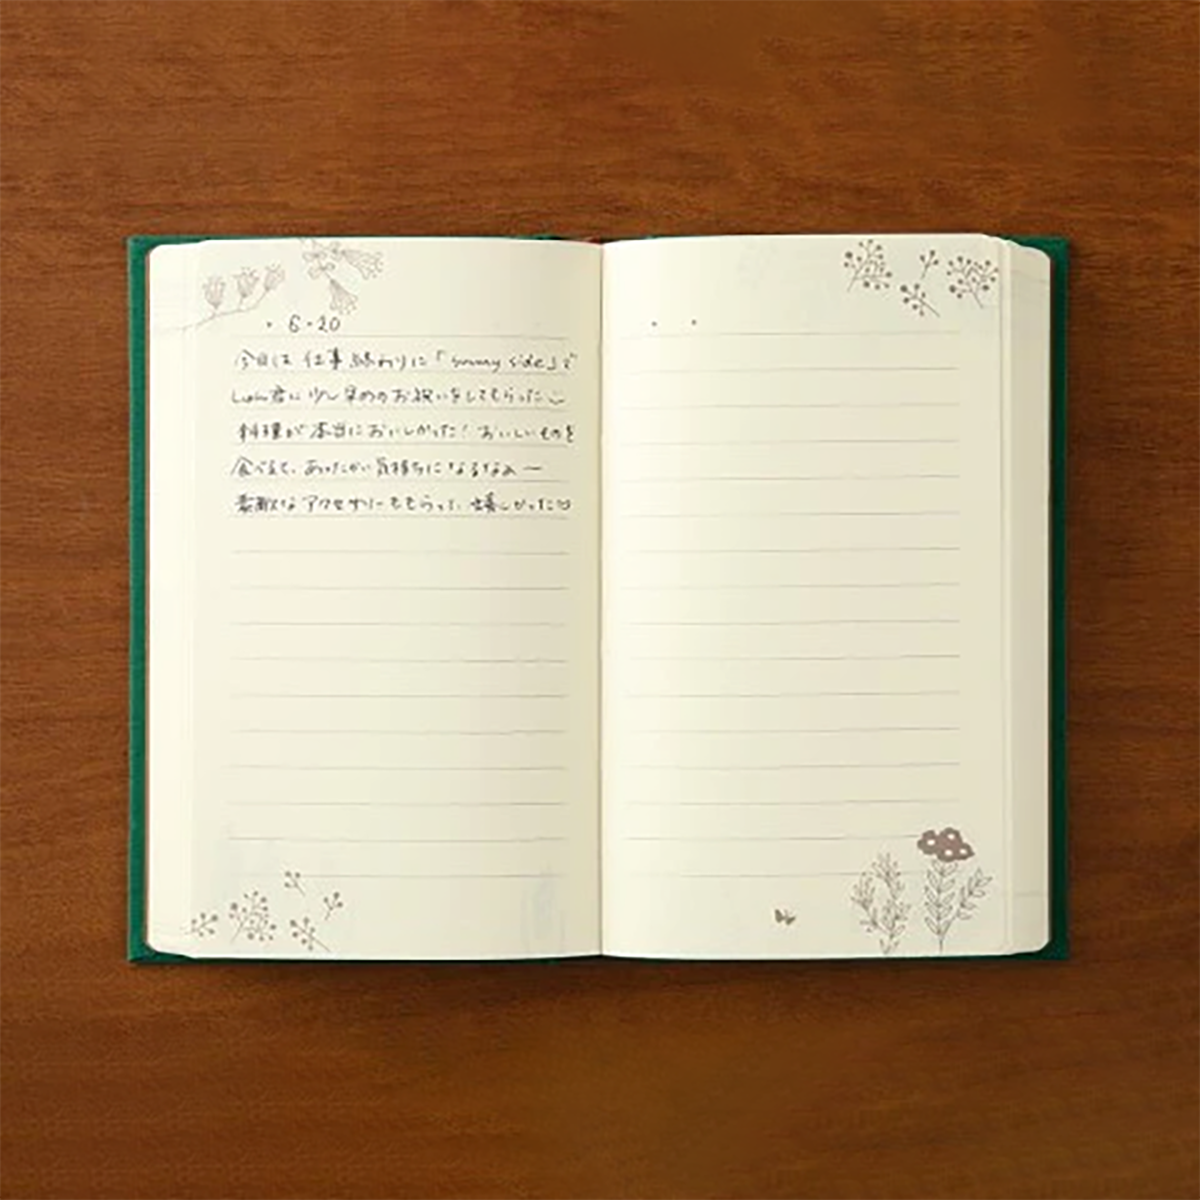 ・6・20
今日は 仕事終わりに「sunny side」で
しゅん君に少し早めのお祝いをしてもらった
料理が本当においしかった！おいしいものを
食べると、あったかい気持ちになるなぁー
素敵なアクセサリーももらって、嬉しかった